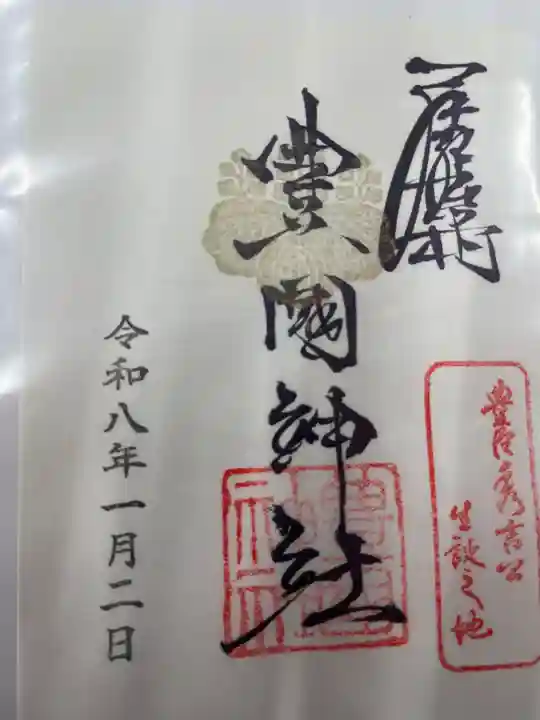 豊臣秀吉公
生誕之地
豊國神社
令和八年一月二日